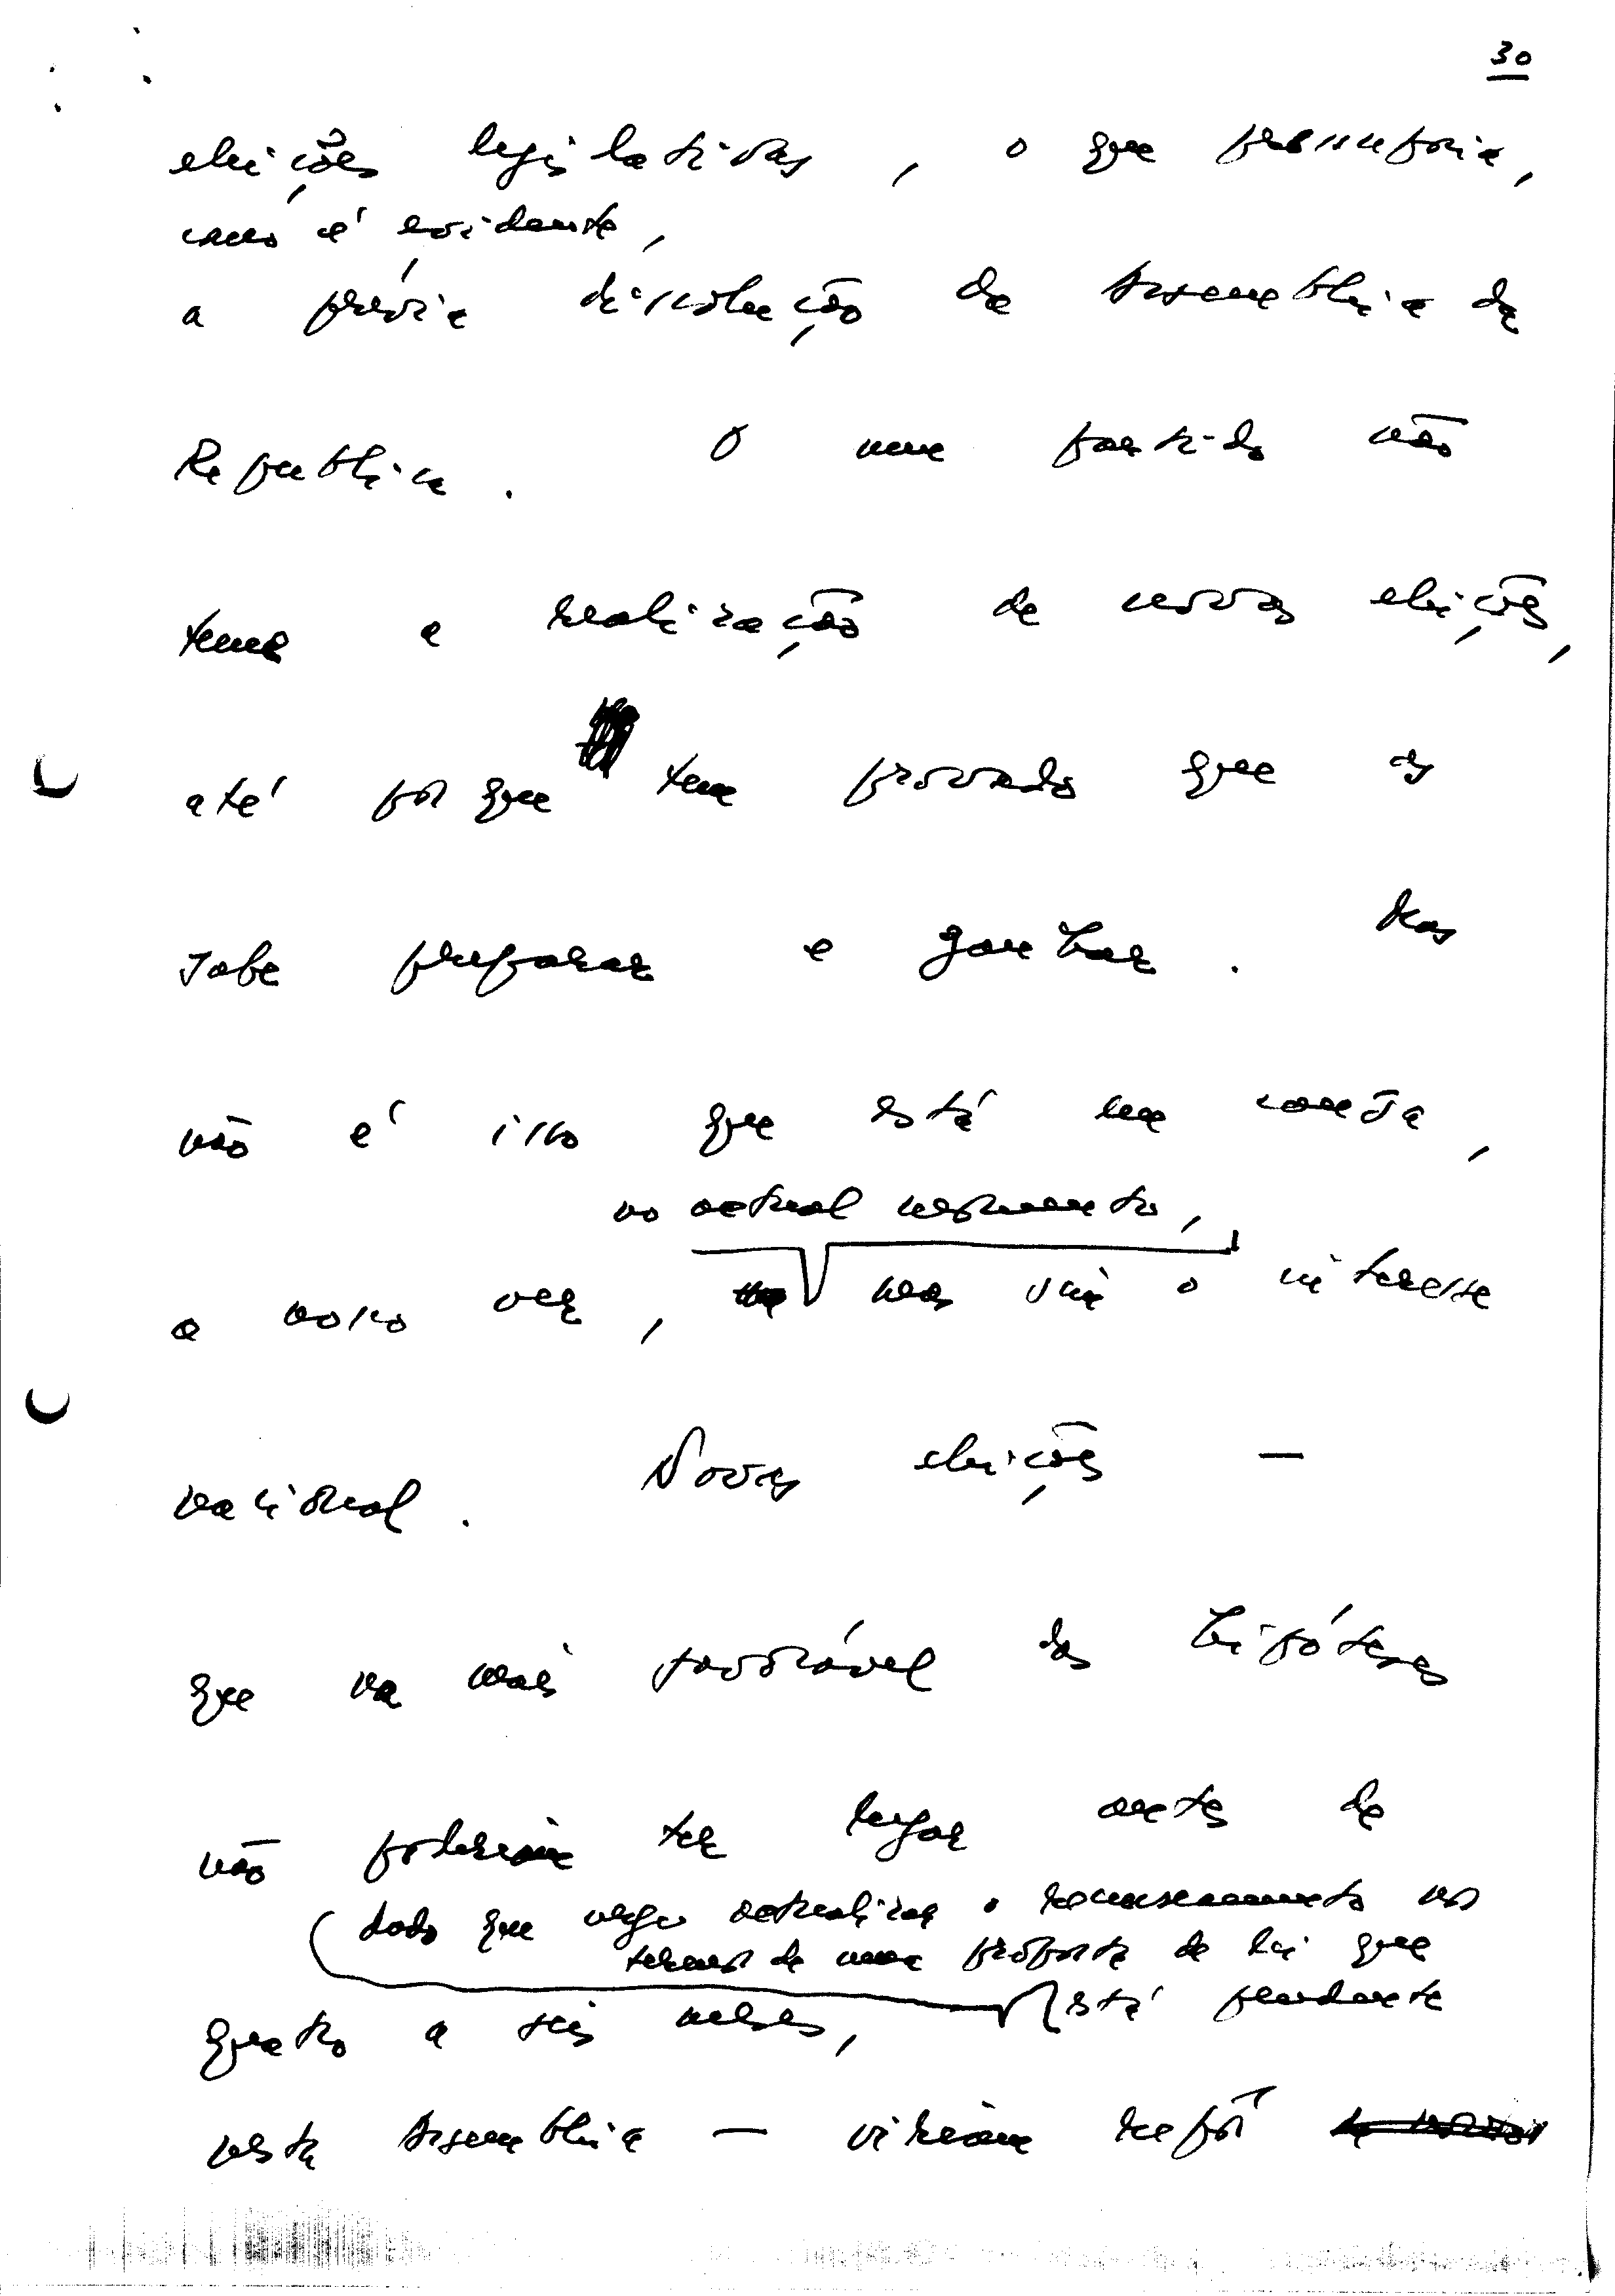 30
eleições legislativas, o que pressuporia,
como é evidente,
a prévia dissolução da Assembleia da
República. O meu partido não
teme a realização de novas eleições,
até porque tem provado que as
sabe preparar e ganhar. Mas
não é isso que está em conta,
no actual momento,
a nosso ver, mas sim o interesse
nacional. Novas eleições —
que na mais favorável das hipóteses
não poderiam ter lugar antes de
dado que urge actualizar o recenseamento nos
termos de uma proposta de lei que
quatro a seis meses, está pendente
nesta Assembleia — viriam repôr